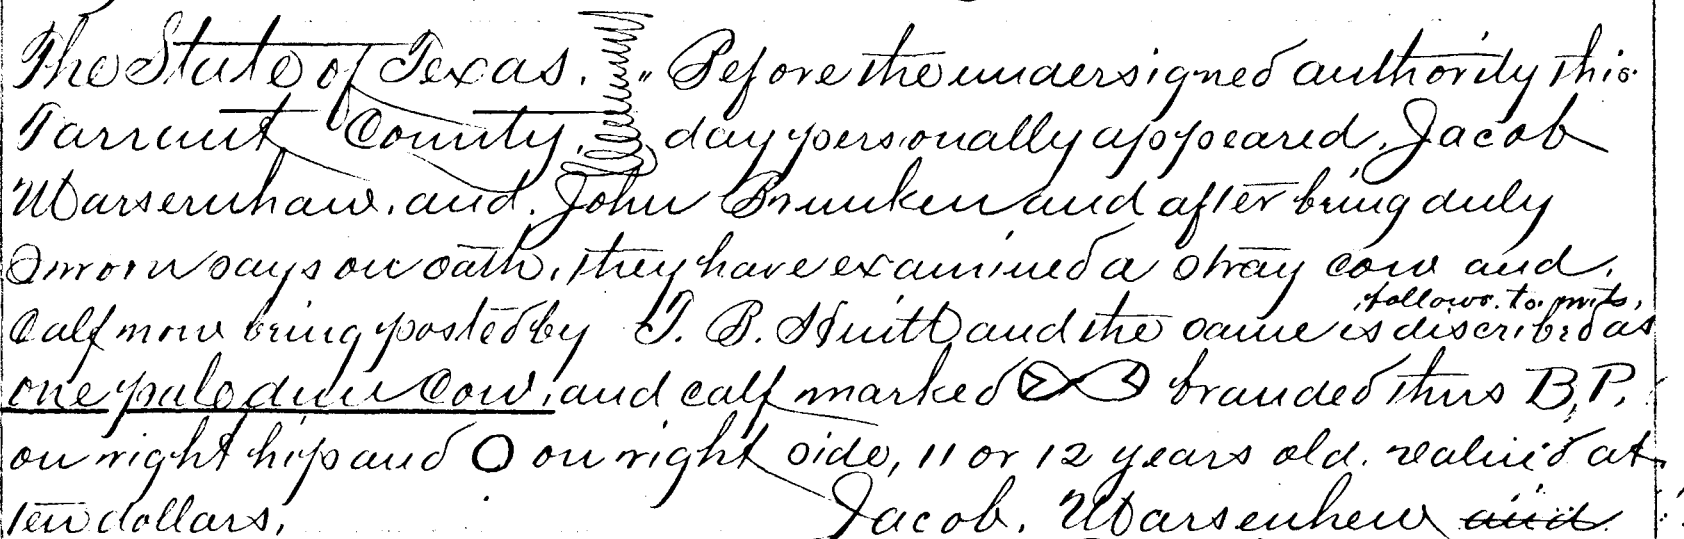 The State of Texas. " Before the undersigned authority this
Tarrant County. day personally appeared, Jacob
Warsenhaw. and. John Brunken and after being duly
Sworn says on oath, they have examined a stray cow and.
follows. to wit,
Calf now being posted by T. B. Huitt and the same is discribed as
one pale dun Cow, and calf marked branded thus B.P.
on right hip and O on right side, 11 or 12 years old. valued at
ten dollars.
Jacob. Warsenhew and